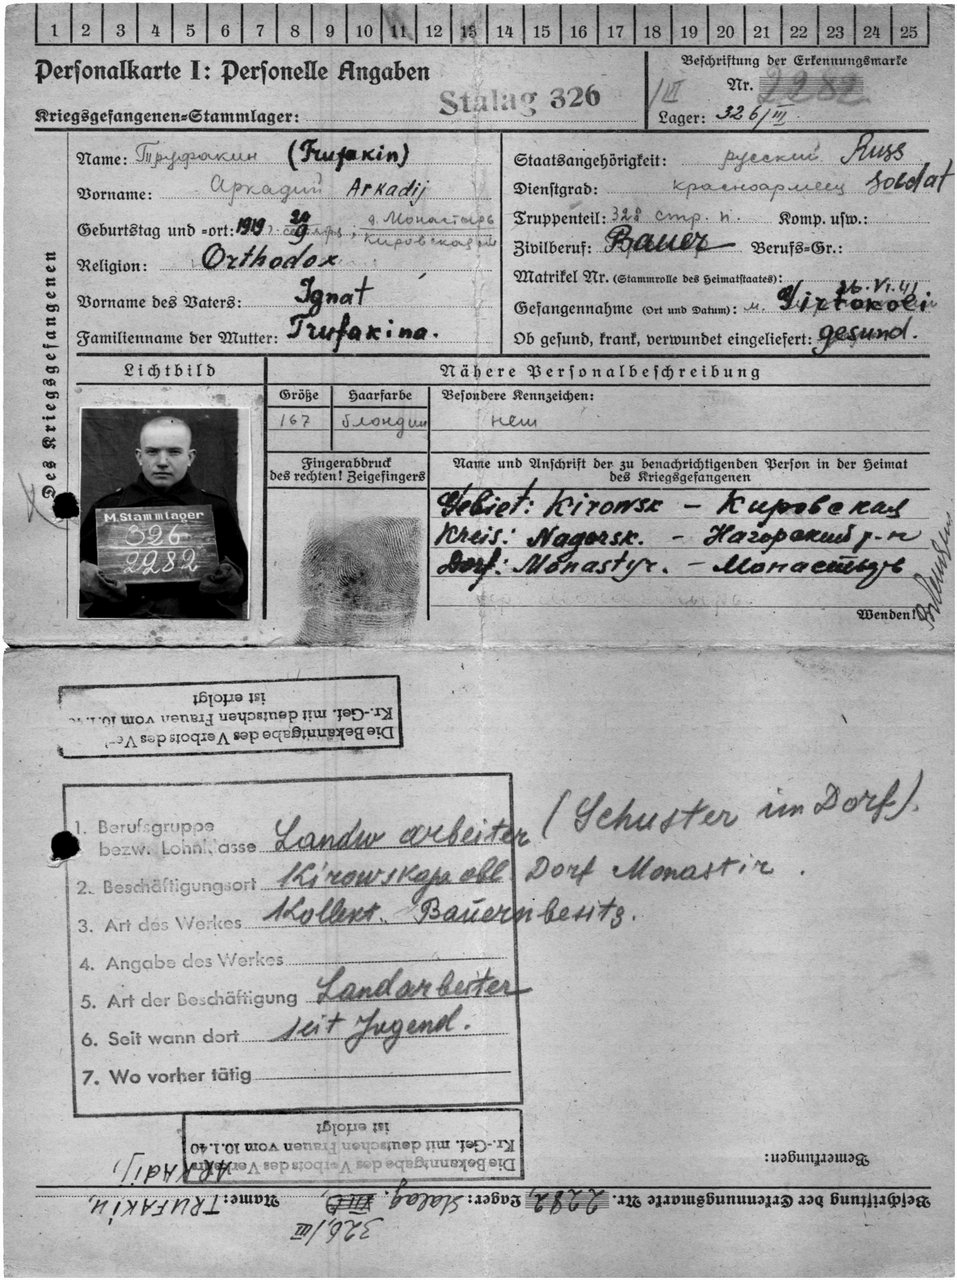 1 2 3 4 5 6 7 8 9 10 11 12 13 14 15 16 17 18 19 20 21 22 23 24 25
Personalkarte I: Personelle Angaben
Beschriftung der Erkennungsmarke
Nr. 2282
Kriegsgefangenen-Stammlager: Stalag 326 /VI
Lager: 326/III
Des Kriegsgefangenen
Name: Труфакин (Trufakin)
Vorname: Аркадий Arkadij
Geburtstag und -ort: 1919, 20 9 д. Монастырь
Кировской
Religion: Orthodox
Vorname des Vaters: Ignat
Familienname der Mutter: Trufakina.
Staatsangehörigkeit: русский Russ
Dienstgrad: красноармеец Soldat
Truppenteil: 328 стр. п. Komp. usw.:
Zivilberuf: Bauer Berufs-Gr.:
Matrikel Nr. (Stammrolle des Heimatstaates):
Gefangennahme (Ort und Datum): м. 26.VI.41
Ob gesund, krank, verwundet eingeliefert: gesund.
Lichtbild
M.Stammlager
326
2282
Nähere Personalbeschreibung
Größe Haarfarbe Besondere Kennzeichen:
167 блондин нет
Fingerabdruck
des rechten! Zeigefingers
Name und Anschrift der zu benachrichtigenden Person in der Heimat
des Kriegsgefangenen
Gebiet: Kirowsk – Кировская
Kreis: Nagorsk. – Нагорский р-н
Dorf: Monastyr. – Монастырь
Wenden!
Die Bekanntgabe des Verbots des
Kr.-Gef. mit deutschen Frauen vom 10.1.
ist erfolgt
1. Berufsgruppe
bezw. Lohnklasse Landw arbeiter (Schuster im Dorf).
2. Beschäftigungsort Kirowskaja obl Dorf Monastir.
3. Art des Werkes Kollekt. Bauernbesitz.
4. Angabe des Werkes
5. Art der Beschäftigung Landarbeiter
6. Seit wann dort seit Jugend.
7. Wo vorher tätig
Die Bekanntgabe des Verbots des Verkehrs
Kr.-Gef. mit deutschen Frauen vom 10.1.40
ist erfolgt
Bemerkungen:
Beschriftung der Erkennungsmarke Nr. 2282 Lager: Stalag. VIIID, Name: TRUFAKIN,
ARKADIJ,
326/III